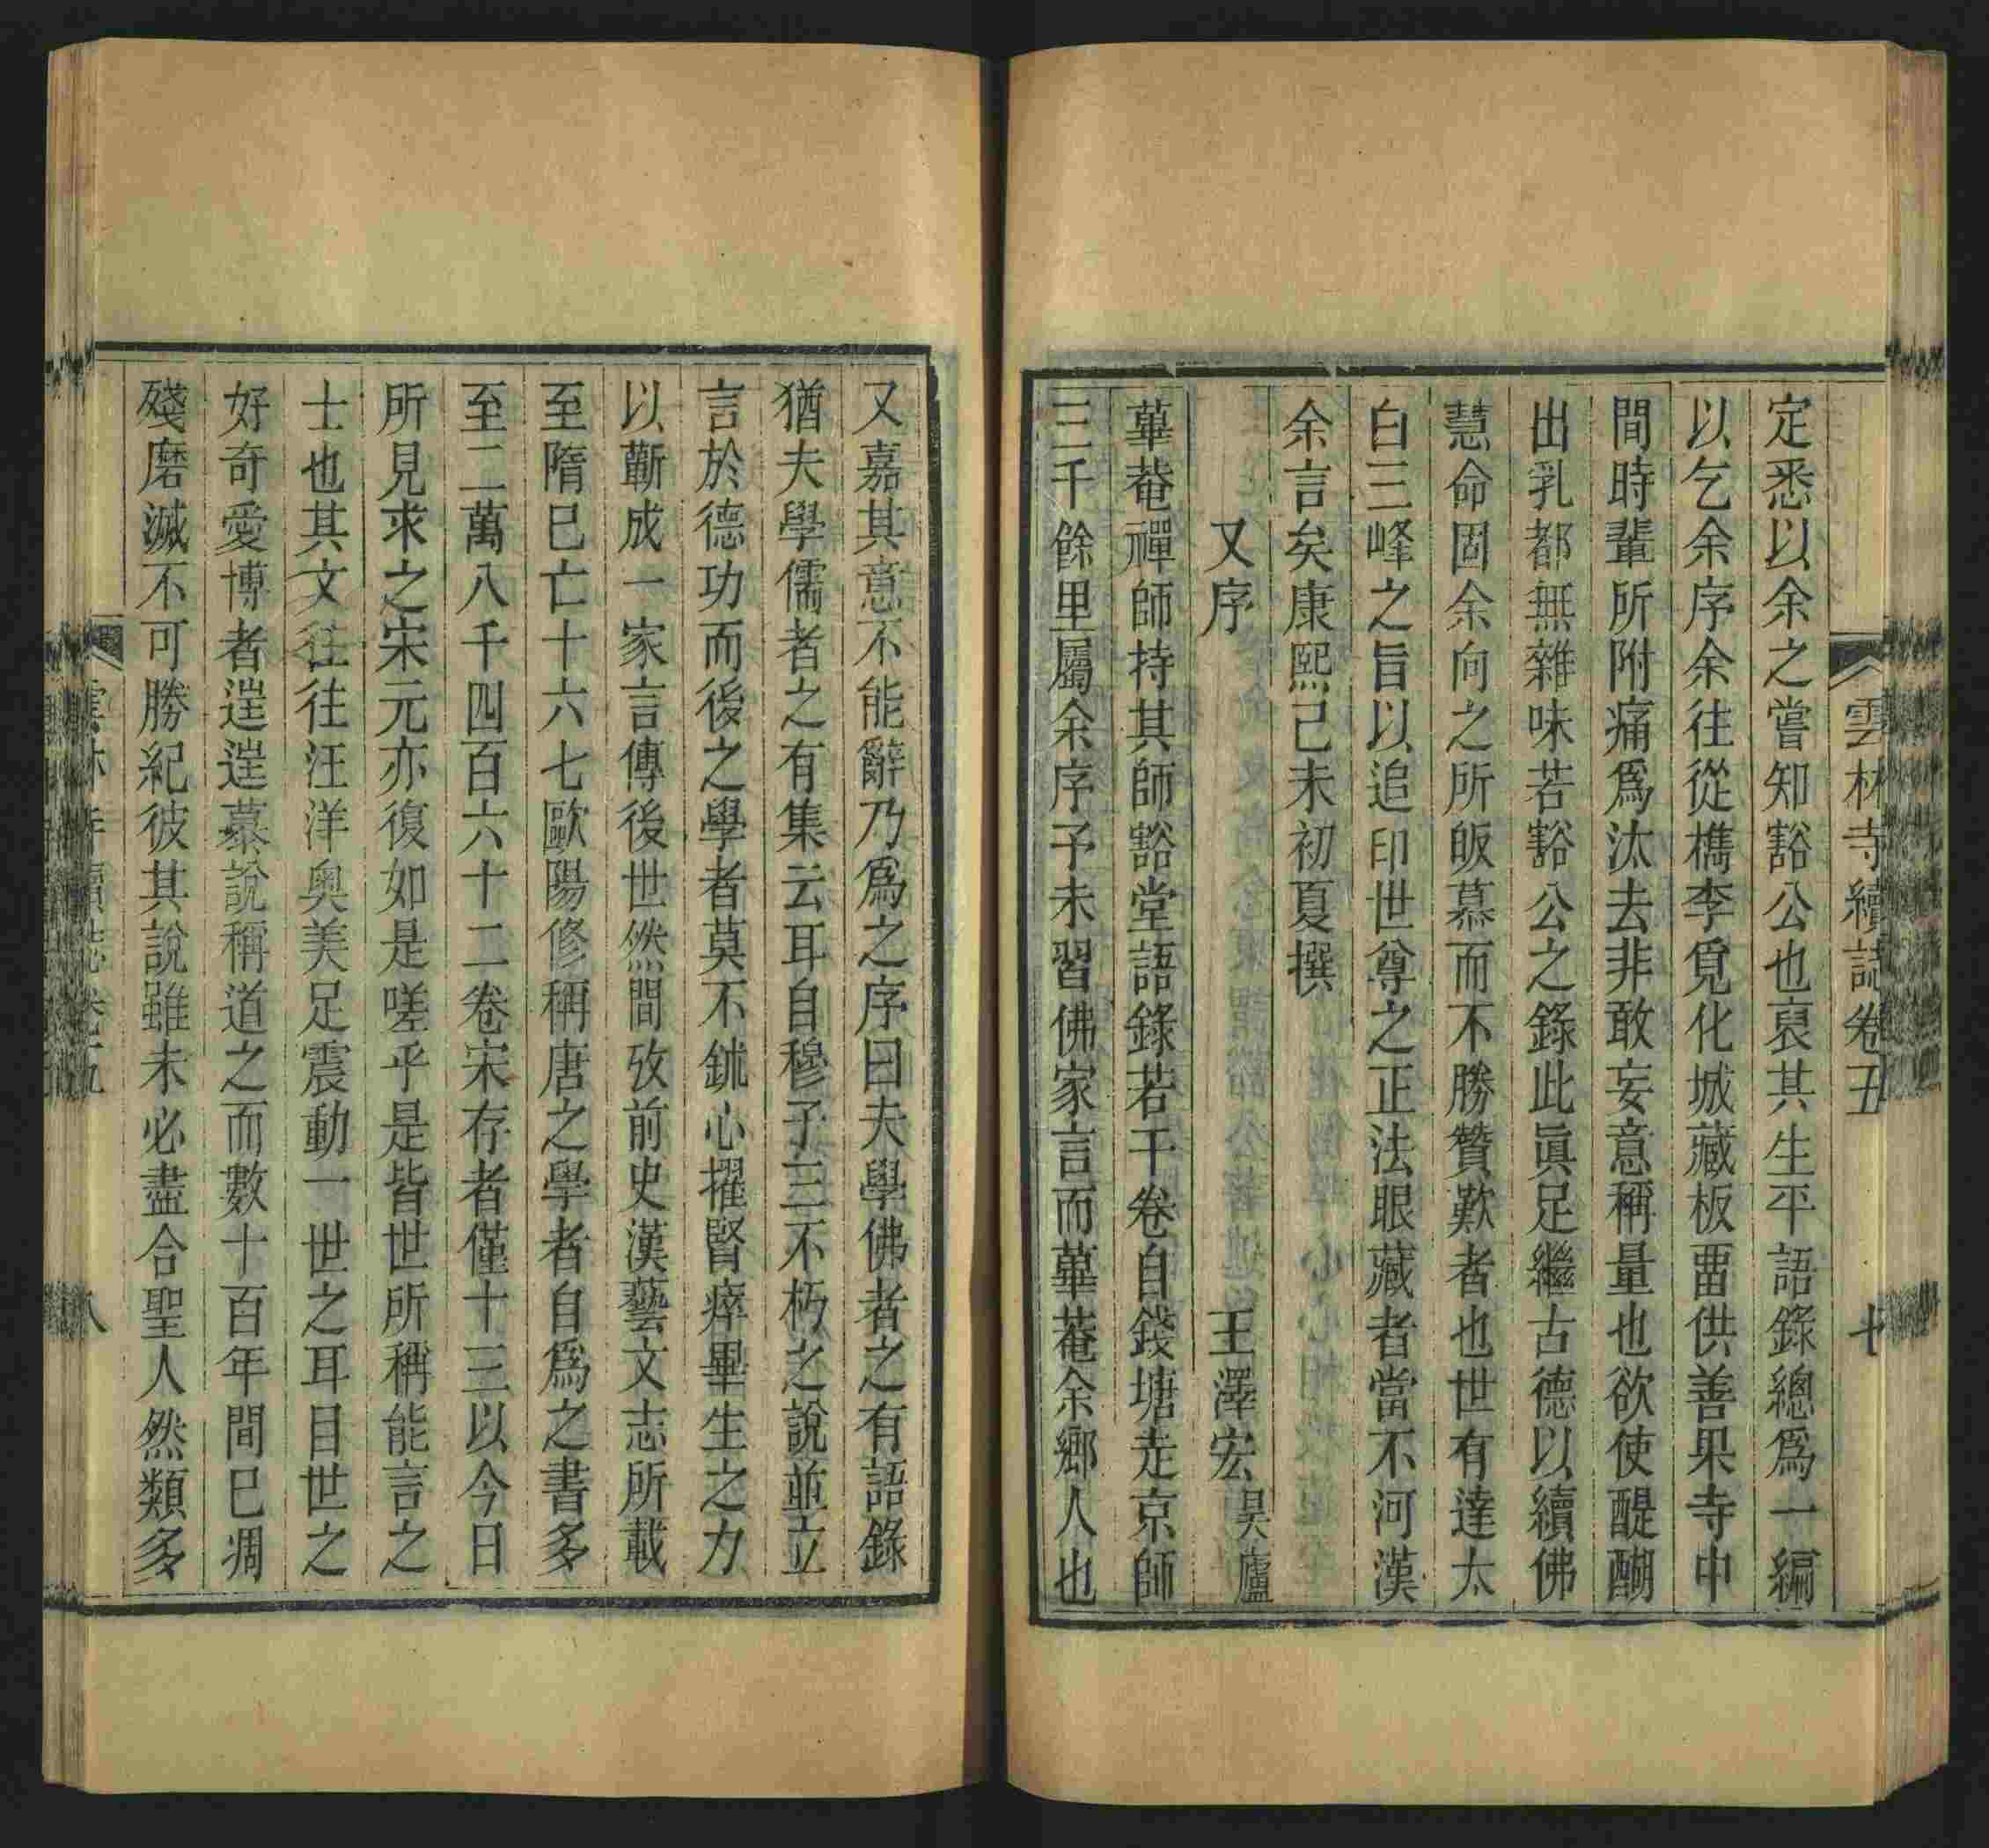 雲林寺續誌卷五 七
定悉以余之嘗知豁公也裒其生平語錄總爲一編
以乞余序余往從檇李覓化城藏板畱供善果寺中
間時輩所附痛爲汰去非敢妄意稱量也欲使醍醐
出乳都無雜味若豁公之錄此眞足繼古德以續佛
慧命固余向之所皈慕而不勝贊歎者也世有達太
白三峰之旨以追印世尊之正法眼藏者當不河漢
余言矣康熙己未初夏撰
又序 王澤宏 昊廬
蓽菴禪師持其師豁堂語錄若干卷自錢塘走京師
三千餘里屬余序予未習佛家言而蓽菴余鄉人也
又嘉其意不能辭乃爲之序曰夫學佛者之有語錄
猶夫學儒者之有集云耳自穆子三不朽之說並立
言於德功而後之學者莫不鉥心擢腎瘁畢生之力
以蘄成一家言傳後世然間攷前史漢藝文志所載
至隋已亡十六七歐陽修稱唐之學者自爲之書多
至二萬八千四百六十二卷宋存者僅十三以今日
所見求之宋元亦復如是嗟乎是皆世所稱能言之
士也其文往往汪洋奥美足震動一世之耳目世之
好奇愛博者遑遑慕說稱道之而數十百年間已凋
殘磨滅不可勝紀彼其說雖未必盡合聖人然類多
雲林寺續誌卷五 八